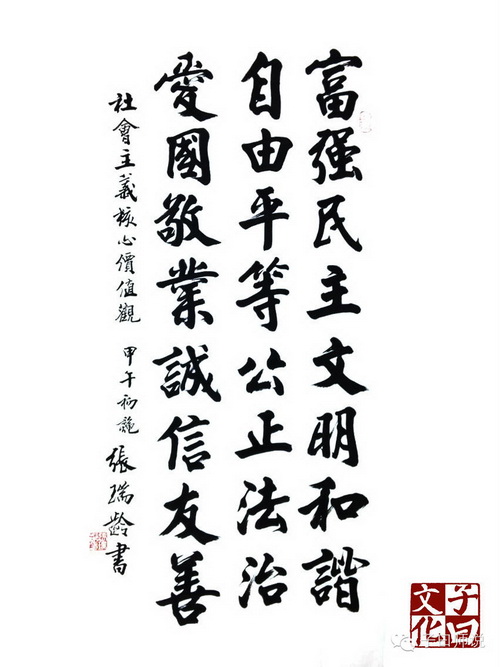 富强民主文明和諧
自由平等公正法治
愛國敬業誠信友善
社會主義核心價值觀 甲午初龍 張瑞齡書
子曰文化